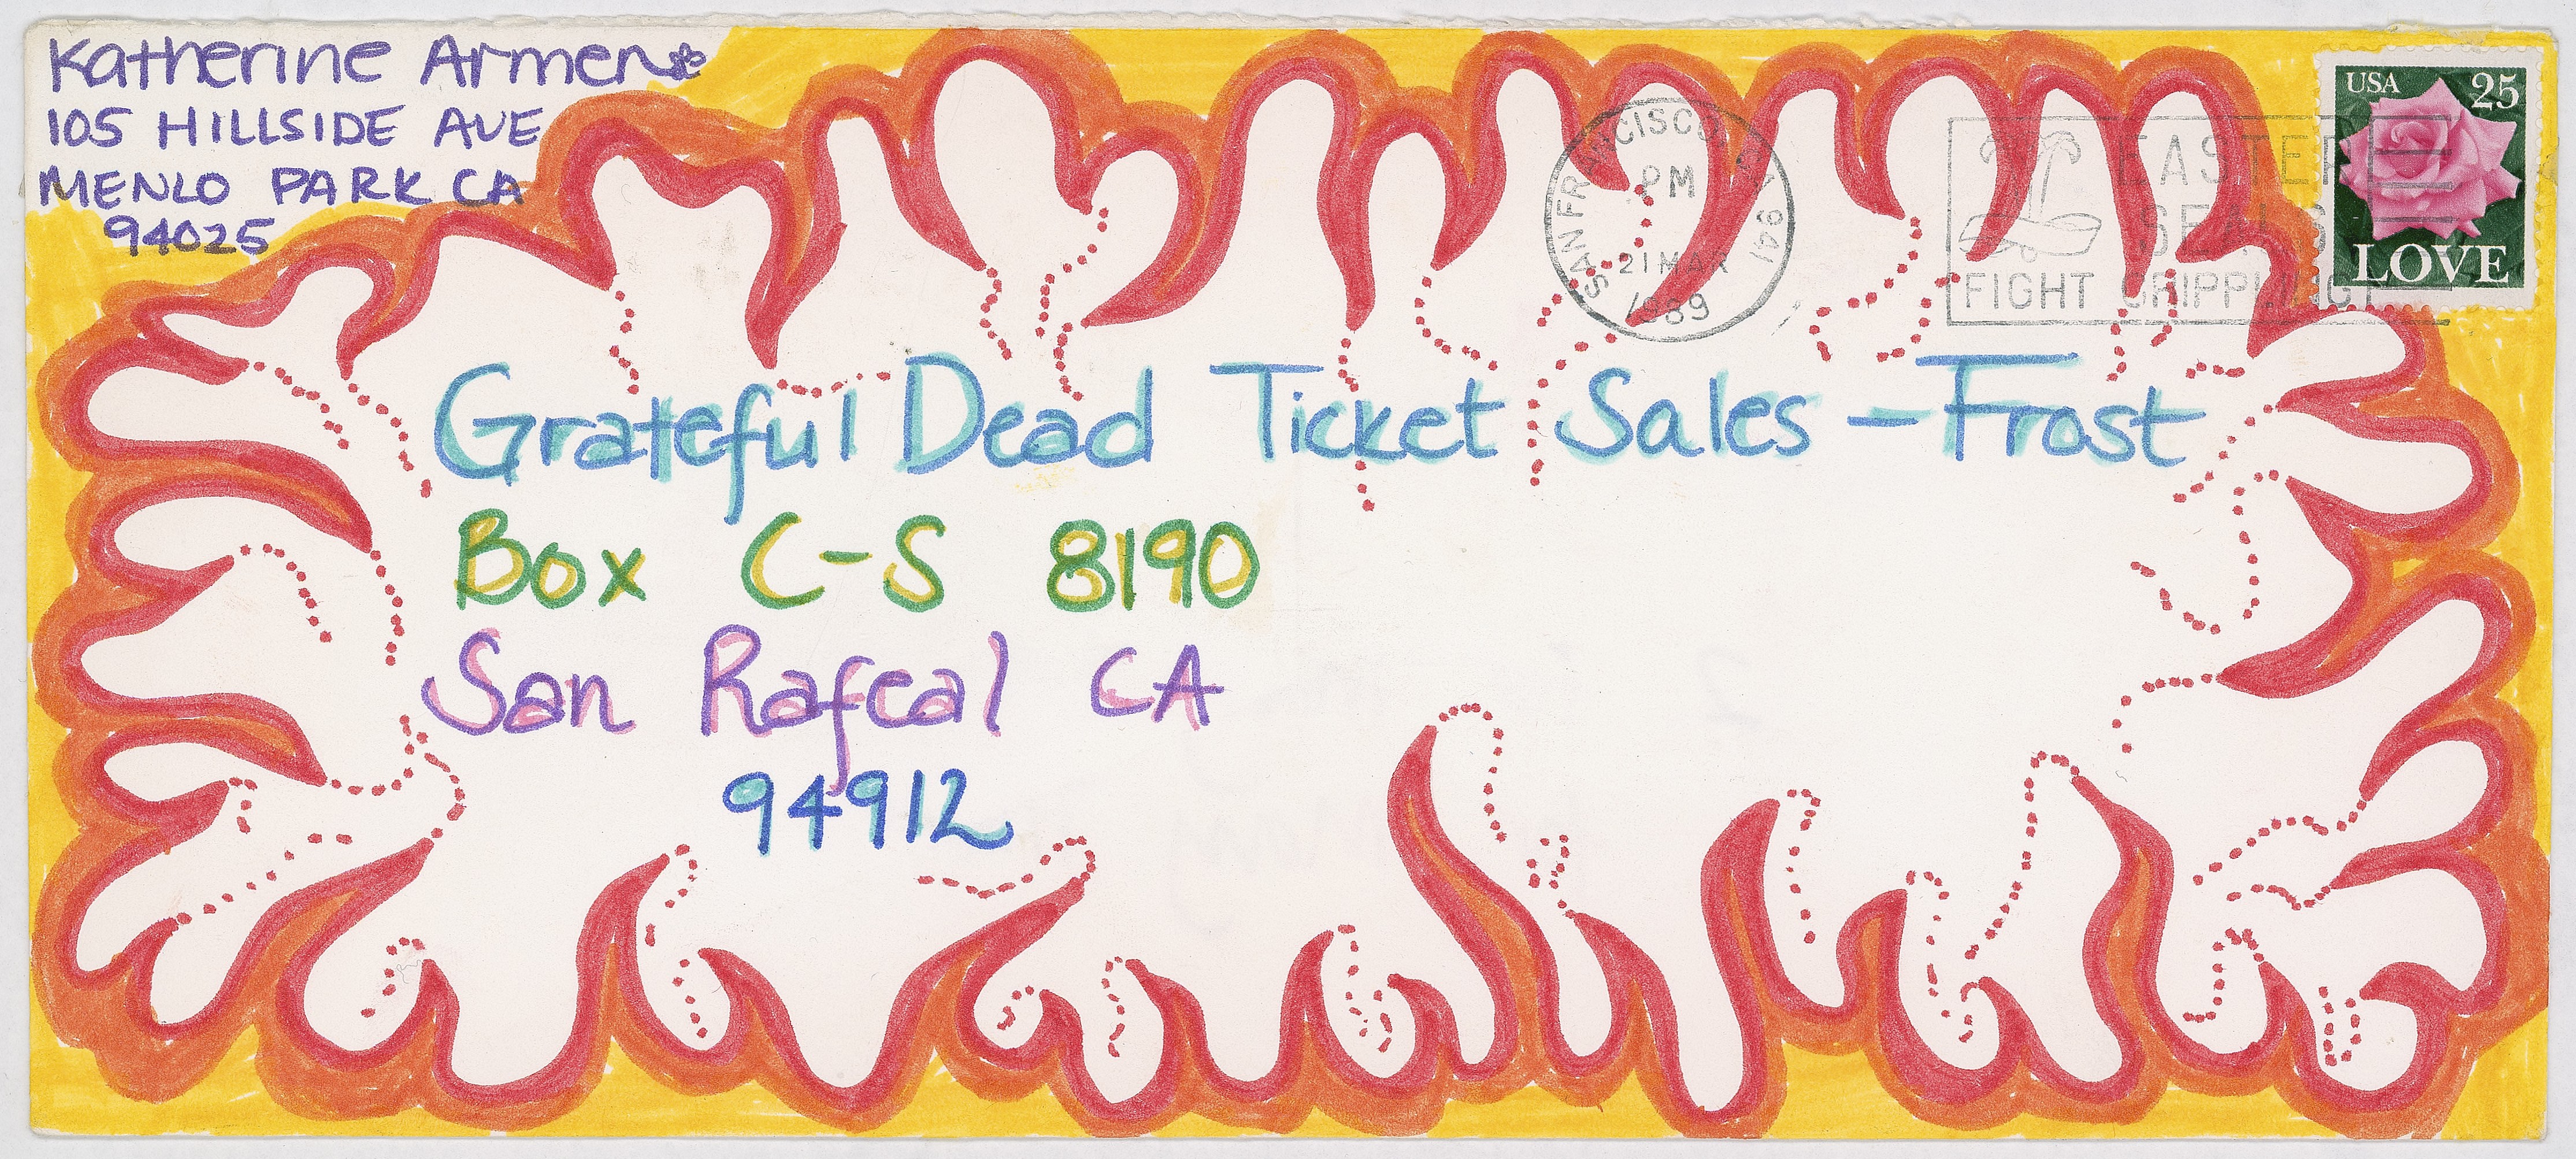 Katherine Armen
105 HILLSIDE AVE
MENLO PARK CA
94025
USA 25
LOVE
SAN FRANCISCO CA 941
PM
21 MAR
1989
EASTER
SEALS
FIGHT CRIPPLING
Grateful Dead Ticket Sales - Frost
Box C-S 8190
San Rafeal CA
94912